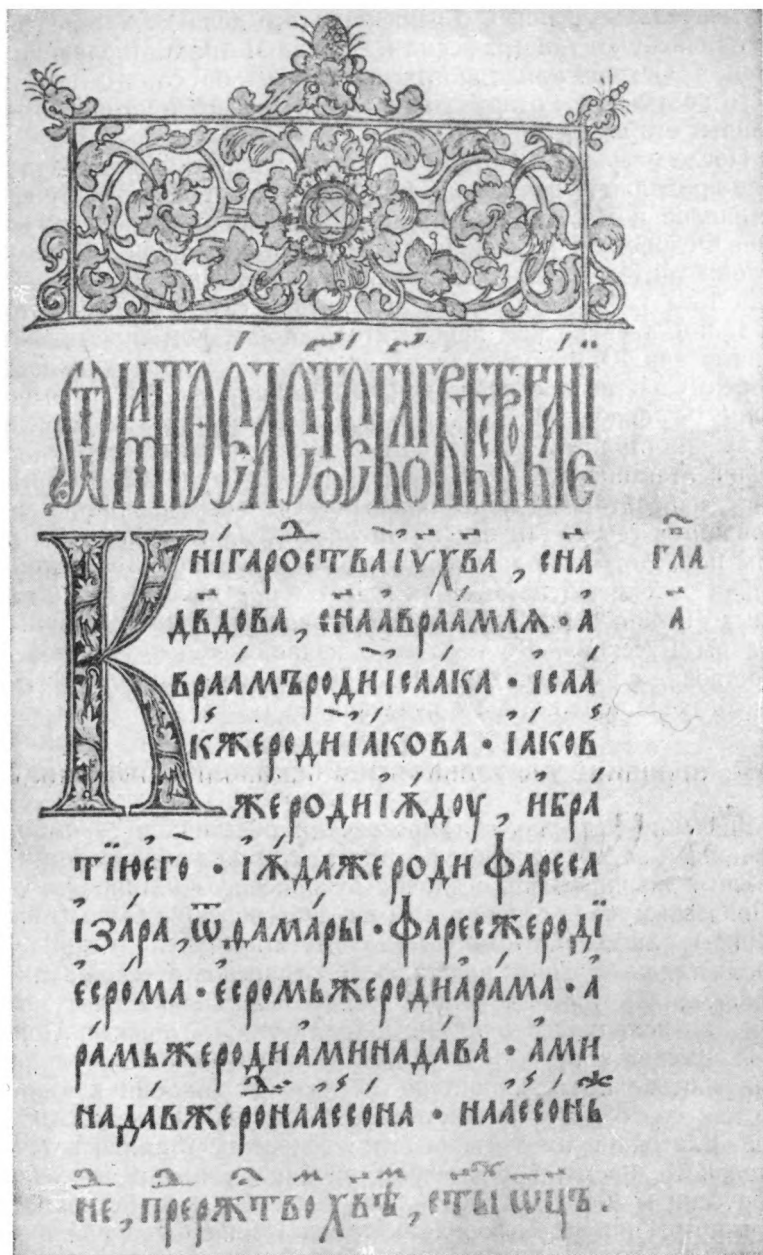 Ѿ МАТѲЕА СТОЕ БЛГОВѢСТВОВАНЇЕ
КНІГАРОⷣСТВАІУ҃Х҃ВА , СН҃А ГЛ҃А
ДВ҃ДОВА , СН҃ААВРААМЛѦ · А А҃
ВРАА́МЪРОДИІСАА́КА · ІСАА́
КЖЕРОДИІА́КОВА · ІА́КОВ
ЖЕРОДИІѪ́ДОУ , ИБРА́
ТЇЮЕГО · ІѪ́ДАЖЕРОДИ ФАРЕСА
ІЗА́РА , ѾДАМА́РЫ · ФАРЕСЖЕРОДЇ
ЕСРО́МА · ЕСРОМЬЖЕРОДИАРА́МА · А
РА́МЬЖЕРОДИАМИНАДА́ВА · АМИ
НАДА́ВЖЕРОⷣНААССО́НА · НААССО́НЬⷤ
НⷣЕ , ПРЕⷣРѪТВОⷨ ХВⷨѢ , СТЫⷯ ѠЦ҃Ъ .